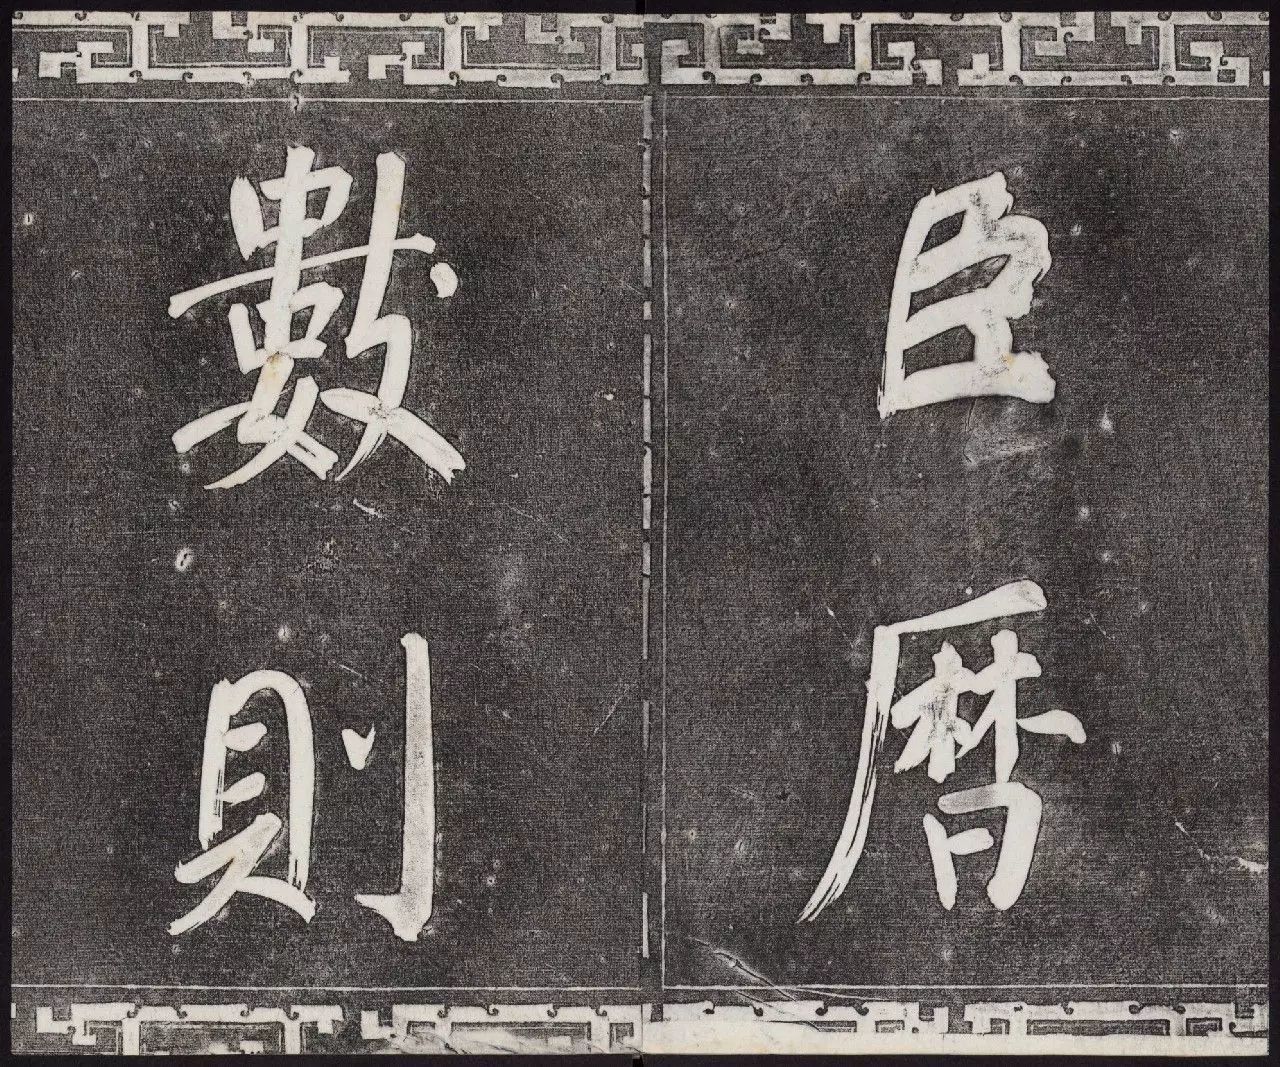 臣曆
數則